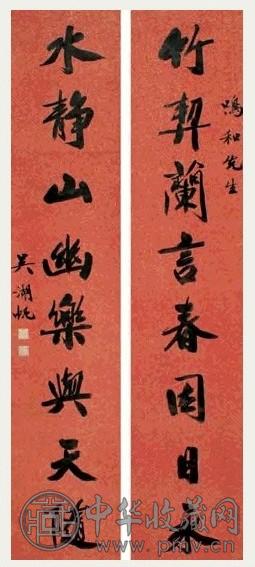 鳴和先生
竹契蘭言春因日
水靜山幽樂與天
吳湖帆
中华收藏网
www.pmv.cn